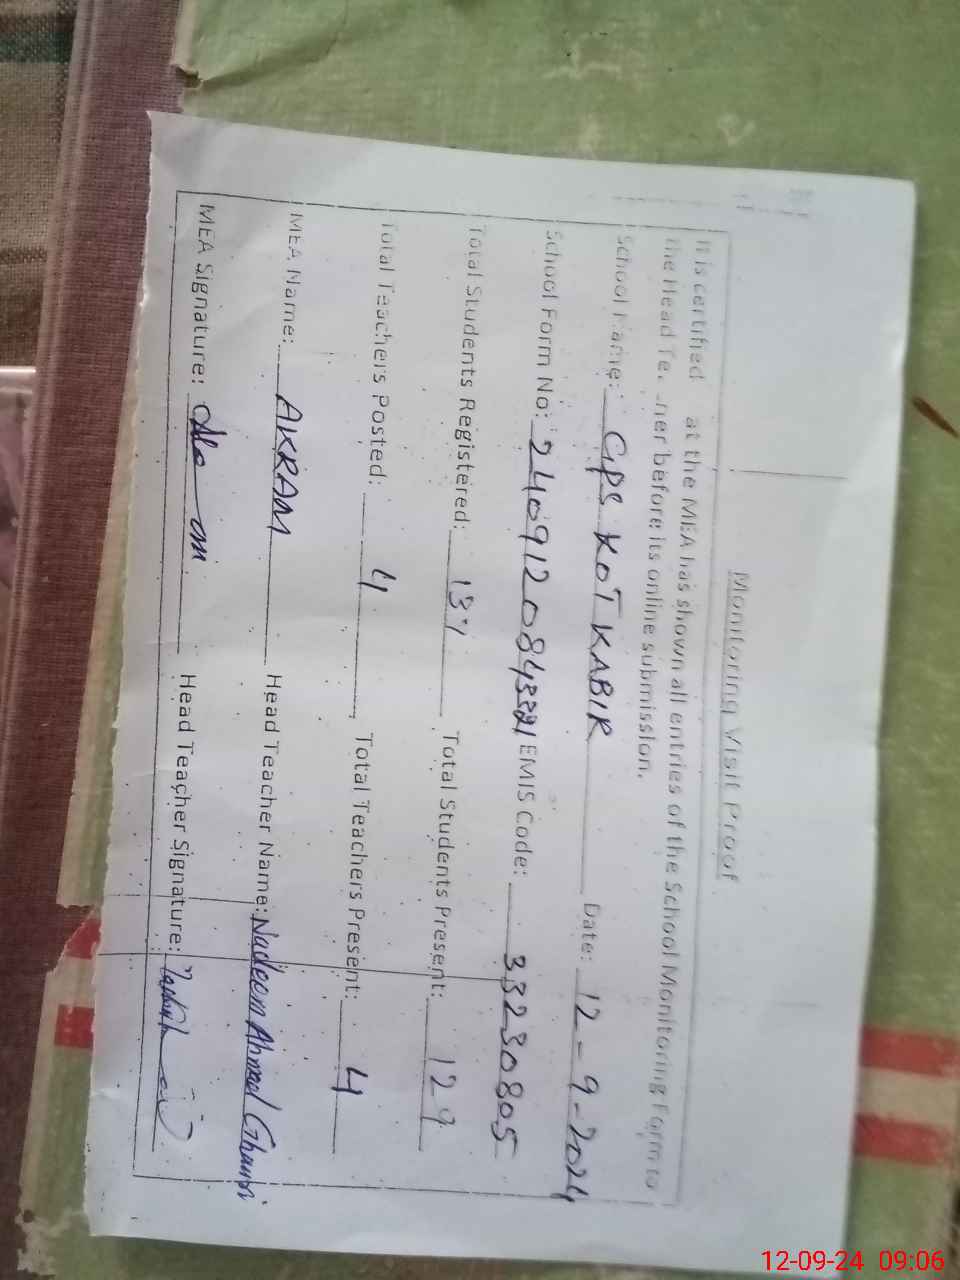 Monitoring Visit Proof
It is certified at the MEA has shown all entries of the School Monitoring Form to
the Head Te. .her before its online submission.
School Name: GPS KOT KABIR Date: 12-9-2024
School Form No: EMIS Code: 33230805
Total Students Registered: 137 Total Students Present: 129
Total Teachers Posted: 4 Total Teachers Present: 4
MEA Name: AKRAM Head Teacher Name: Nadeem Ahmed
MEA Signature: Head Teacher Signature:
12-09-24 09:06